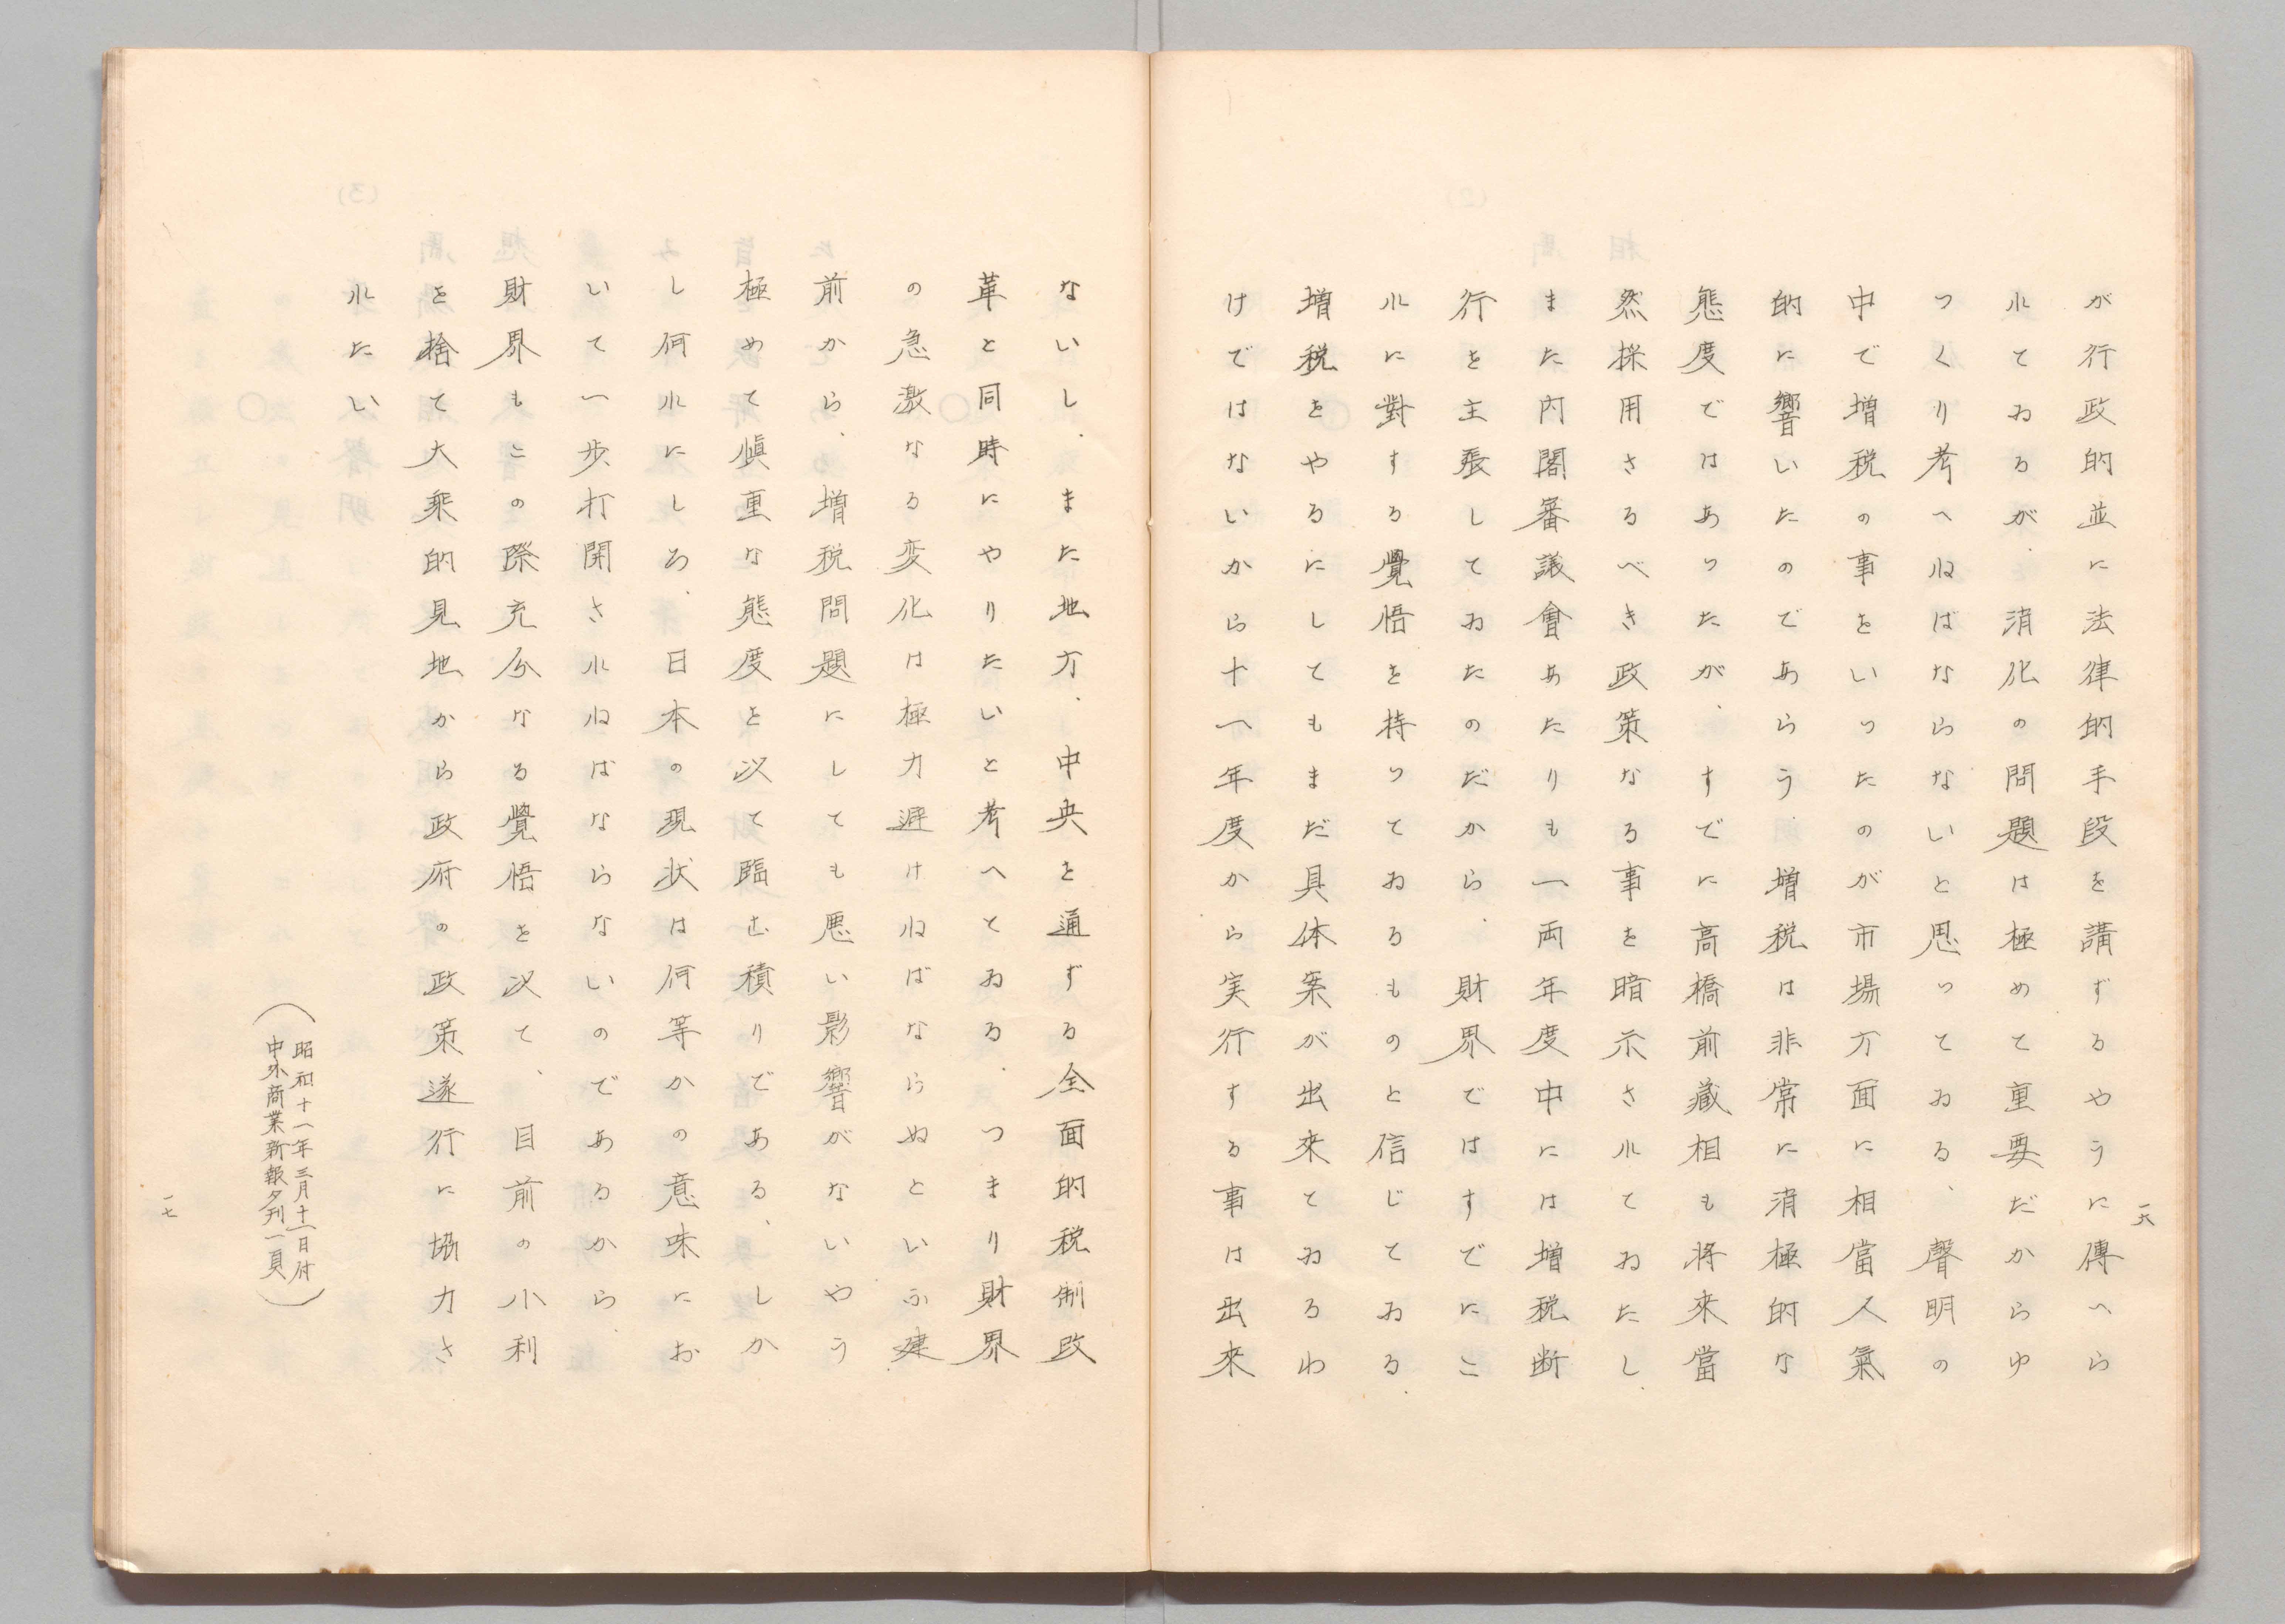 が行政的並に法律的手段を講ずるやうに傳へら
れてゐるが、消化の問題は極めて重要だからゆ
つくり考へねばならないと思つてゐる、聲明の
中で増税の事をいつたのが市場方面に相當人氣
的に響いたのであらう、増税は非常に消極的な
態度ではあつたが、すでに高橋前藏相も将來當
然採用さるべき政策なる事を暗示されてゐたし
また内閣審議會あたりも一両年度中には増税断
行を主張してゐたのだから、財界ではすでにこ
れに對する覺悟を持つてゐるものと信じてゐる、
増税をやるにしてもまだ具体案が出來てゐるわ
けではないから十一年度から実行する事は出來
一六
ないし、また地方、中央を通ずる全面的税制改
革と同時にやりたいと考へてゐる、つまり財界
の急激なる変化は極力避けねばならぬといふ建
前から、増税問題にしても悪い影響がないやう
極めて愼重な態度を以て臨む積りである、しか
し何れにしろ、日本の現状は何等かの意味にお
いて一歩打開されねばならないのであるから、
財界もこの際充分なる覺悟を以て、目前の小利
を捨て大乘的見地から政府の政策遂行に協力さ
れたい
（昭和十一年三月十一日付
中外商業新報夕刊一頁）
一七